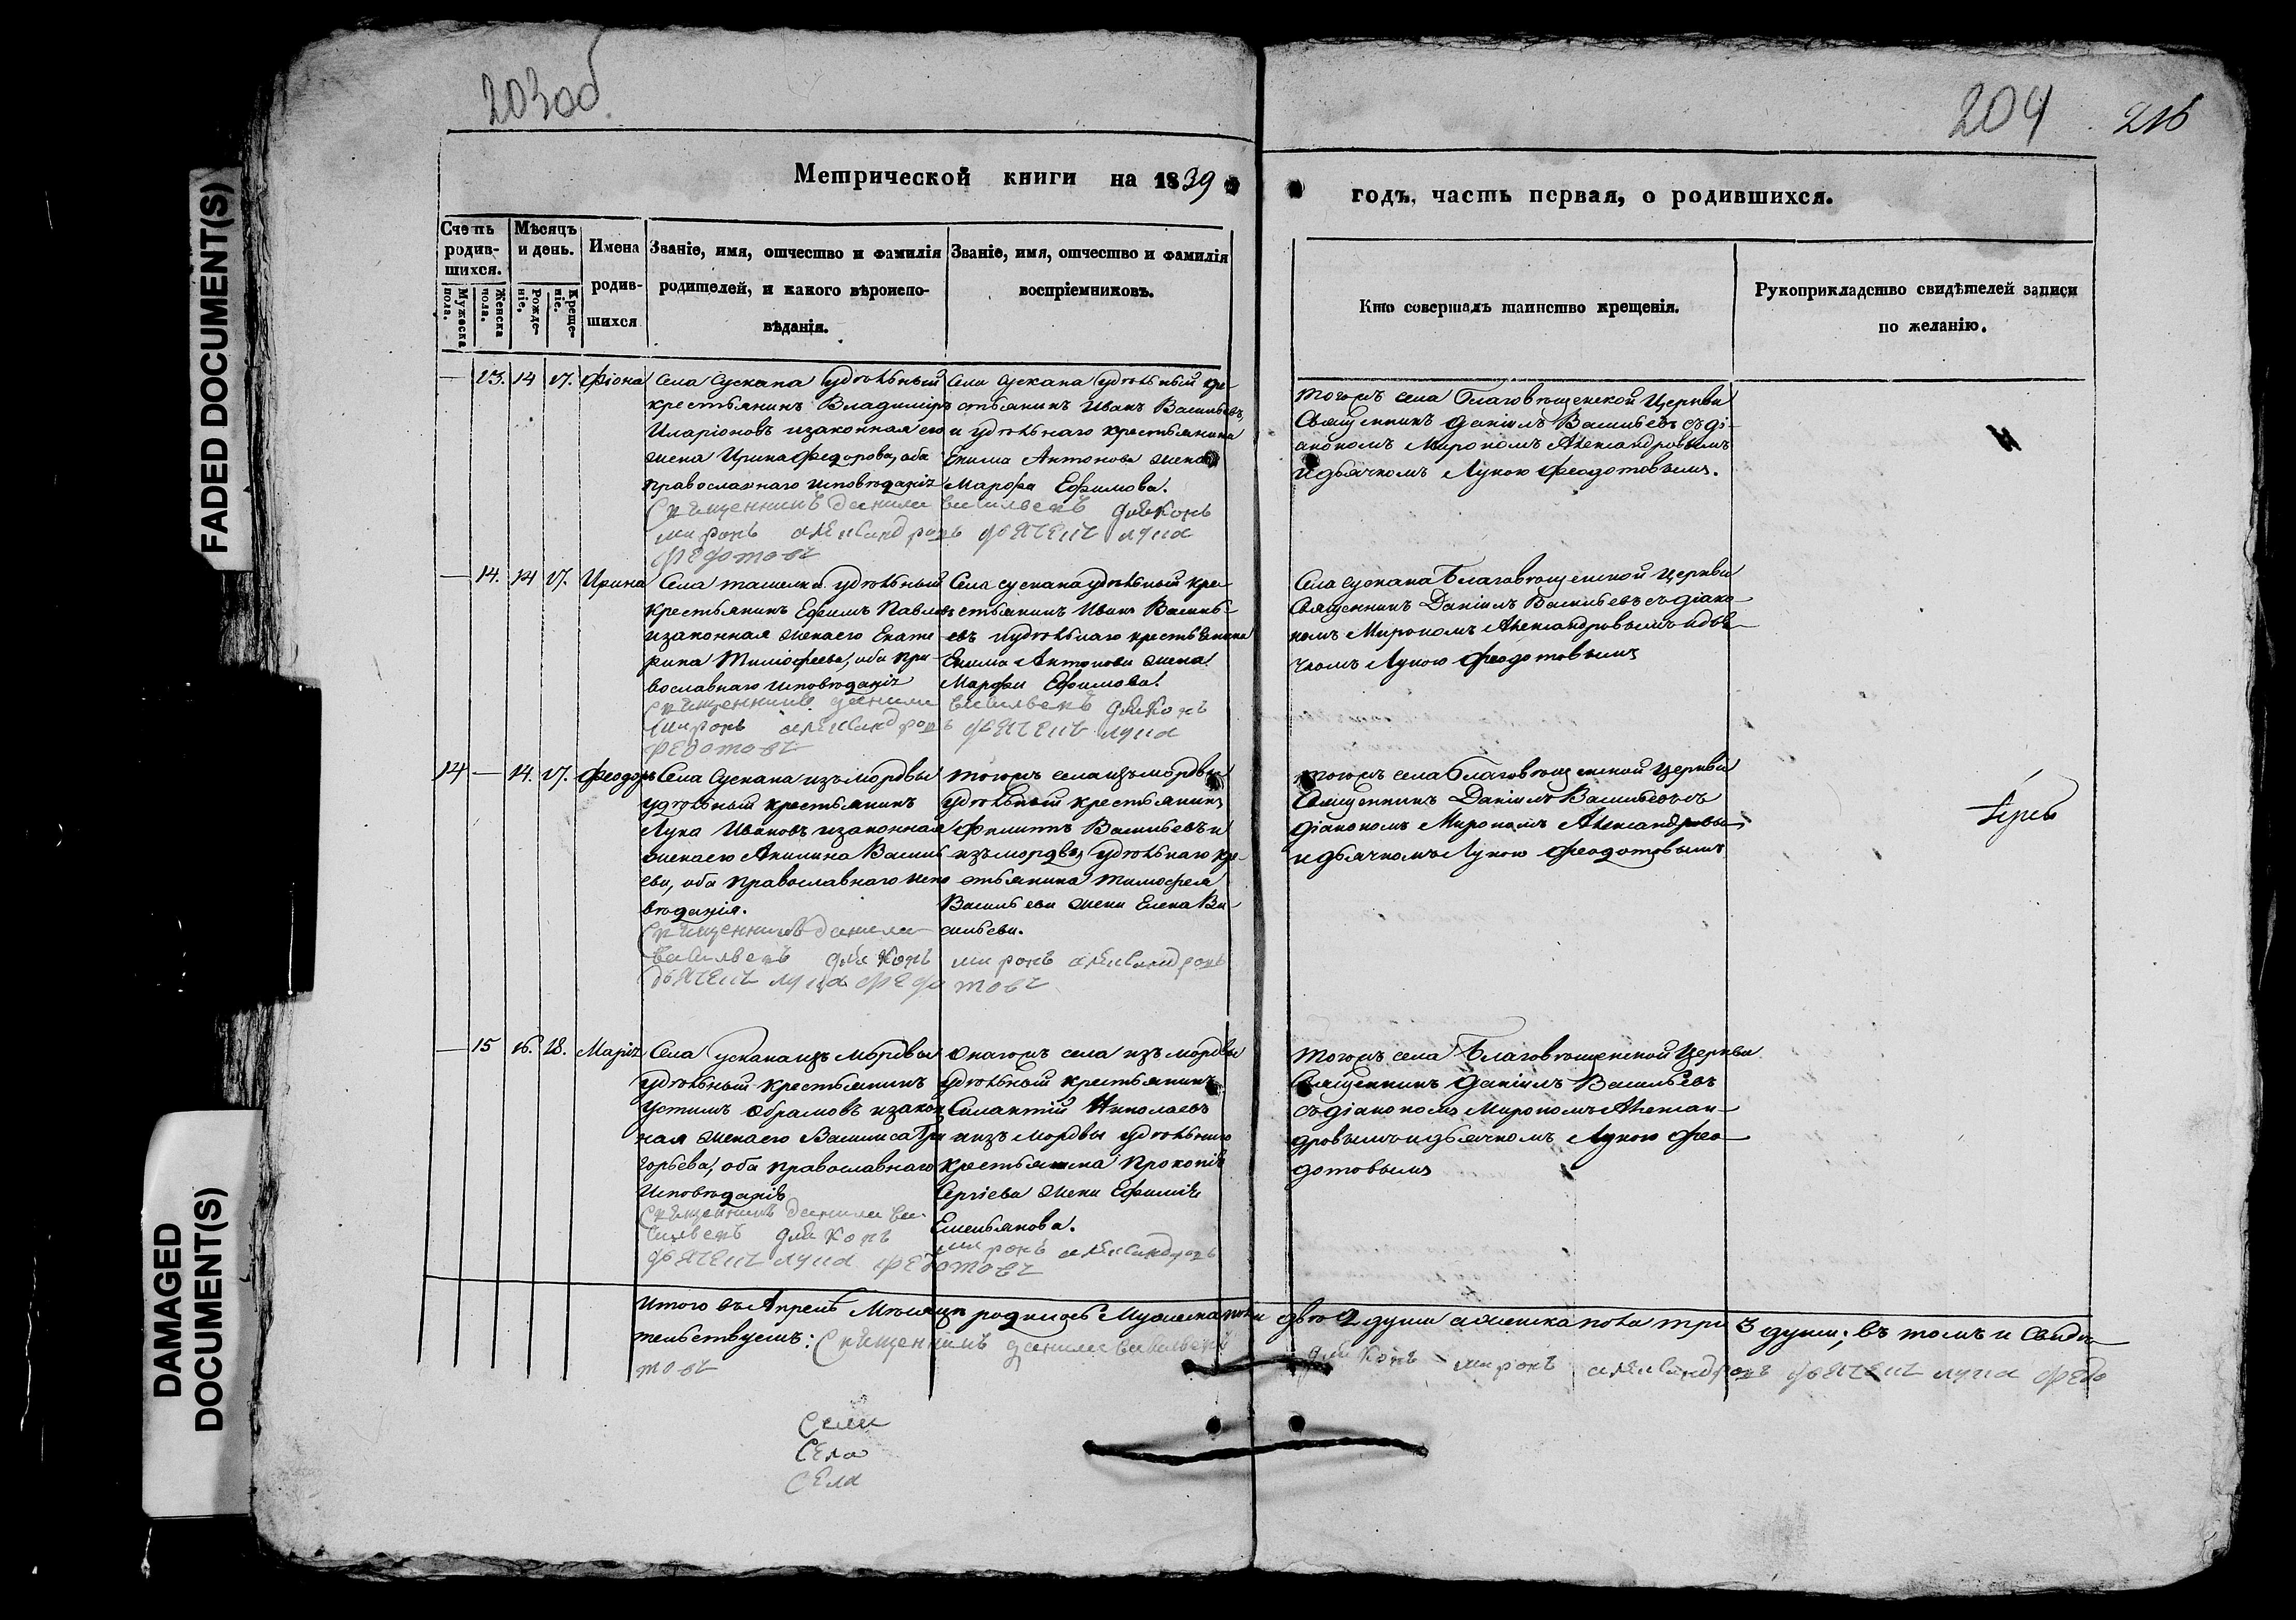 FADED DOCUMENT(S)
DAMAGED
DOCUMENT(S)
203об
204
216
Метрической книги на 1839
годъ, часть первая, о родившихся.
Счетъ
родив-
шихся.
Мужеска
пола.
Женска
пола.
Мѣсяцъ
и день.
Рожде-
ніе.
Креще-
ніе.
Имена
родив-
шихся
Званіе, имя, отчество и фамилія
родителей, и какого вѣроиспо-
вѣданія.
Званіе, имя, отчество и фамилія
воспріемниковъ.
Кто совершалъ таинство крещенія.
Рукоприкладство свидѣтелей записи
по желанію.
— 13. 14 17. Фіона
Села Сускана удѣльный
крестьянинъ Владиміръ
Иларіоновъ изаконная его
жена Ирина Федорова, оба
православнаго исповѣданія
Села Сускана удѣльный кре-
стьянинъ Иванъ Васильевъ,
и удѣльнаго крестьянина
Екима Антонова жена
Марфа Ефимова.
Тогожъ села Благовѣщенской Церкви
Священникъ Даніилъ Васильевъ съ ді-
акономъ Мирономъ Александровымъ
и дьячкомъ Лукою Феодотовымъ.
Священникъ данила васильевъ дьяконъ
миронъ александровъ дьячекъ лука
федотовъ
— 14. 14 17. Ирина
Села ташелка удѣльный
крестьянинъ Ефимъ Павловъ
изаконная жена его Екате
рина Тимофеева, оба пра-
вославнаго исповѣданія
Села сускана удѣльный кре-
стьянинъ Иванъ Василь-
евъ и удѣльнаго крестьянина
Екима Антонова жена
Марфа Ефимова.
Села сускана Благовѣщенской Церкви
Священникъ Даніилъ Васильевъ съ діако-
номъ Мирономъ Александровымъ и дья-
чкомъ Лукою Феодотовымъ
Священникъ данила васильевъ дьяконъ
миронъ александровъ дьячекъ лука
федотовъ
14 — 14. 17. Феодоръ
Села Сускана изъ мордвы
удѣльный крестьянинъ
Лука Ивановъ изаконная
жена его Акилина Василь
ева, оба православнаго испо
вѣданія.
Тогожъ села изъ мордвы
удѣльный крестьянинъ
Филиппъ Васильевъ и
изъ мордвы удѣльнаго кре-
стьянина тимофея
Васильева жена Елена Ва-
сильева.
Тогожъ села Благовѣщенской Церкви
Священникъ Даніилъ Васильевъ съ
діакономъ Мирономъ Александровы
и дьячкомъ Лукою Феодотовымъ
Священникъ данила
васильевъ дьяконъ миронъ александровъ
дьячекъ лука федотовъ
— 15 16. 18. Марія
Села Сускана изъ мордвы
удѣльный крестьянинъ
Устимъ Абрамовъ изакон
ная жена его Василиса Гри
горьева, оба православнаго
исповѣданія
Онагожъ села изъ мордвы
удѣльный крестьянинъ
Силантій Николаевъ
и изъ мордвы удѣльнаго
крестьянина Прокопія
Сергіева жена Ефимія
Емельянова.
Тогожъ села Благовѣщенской Церкви
Священникъ Даніилъ Васильевъ
съ діакономъ Мирономъ Алексан-
дровымъ и дьячкомъ Лукою Фео-
дотовымъ
Священникъ данила ва-
сильевъ дьяконъ миронъ александровъ
дьячекъ лука федотовъ
Итого въ Апрелѣ Мѣсяцѣ родилось Мужеска пола двѣ 2 души а женска пола три 3 души; въ томъ и Свидѣ-
тельствуемъ: Священникъ данила васильевъ дьяконъ миронъ александровъ дьячекъ лука федо
товъ
Села
Села
Села